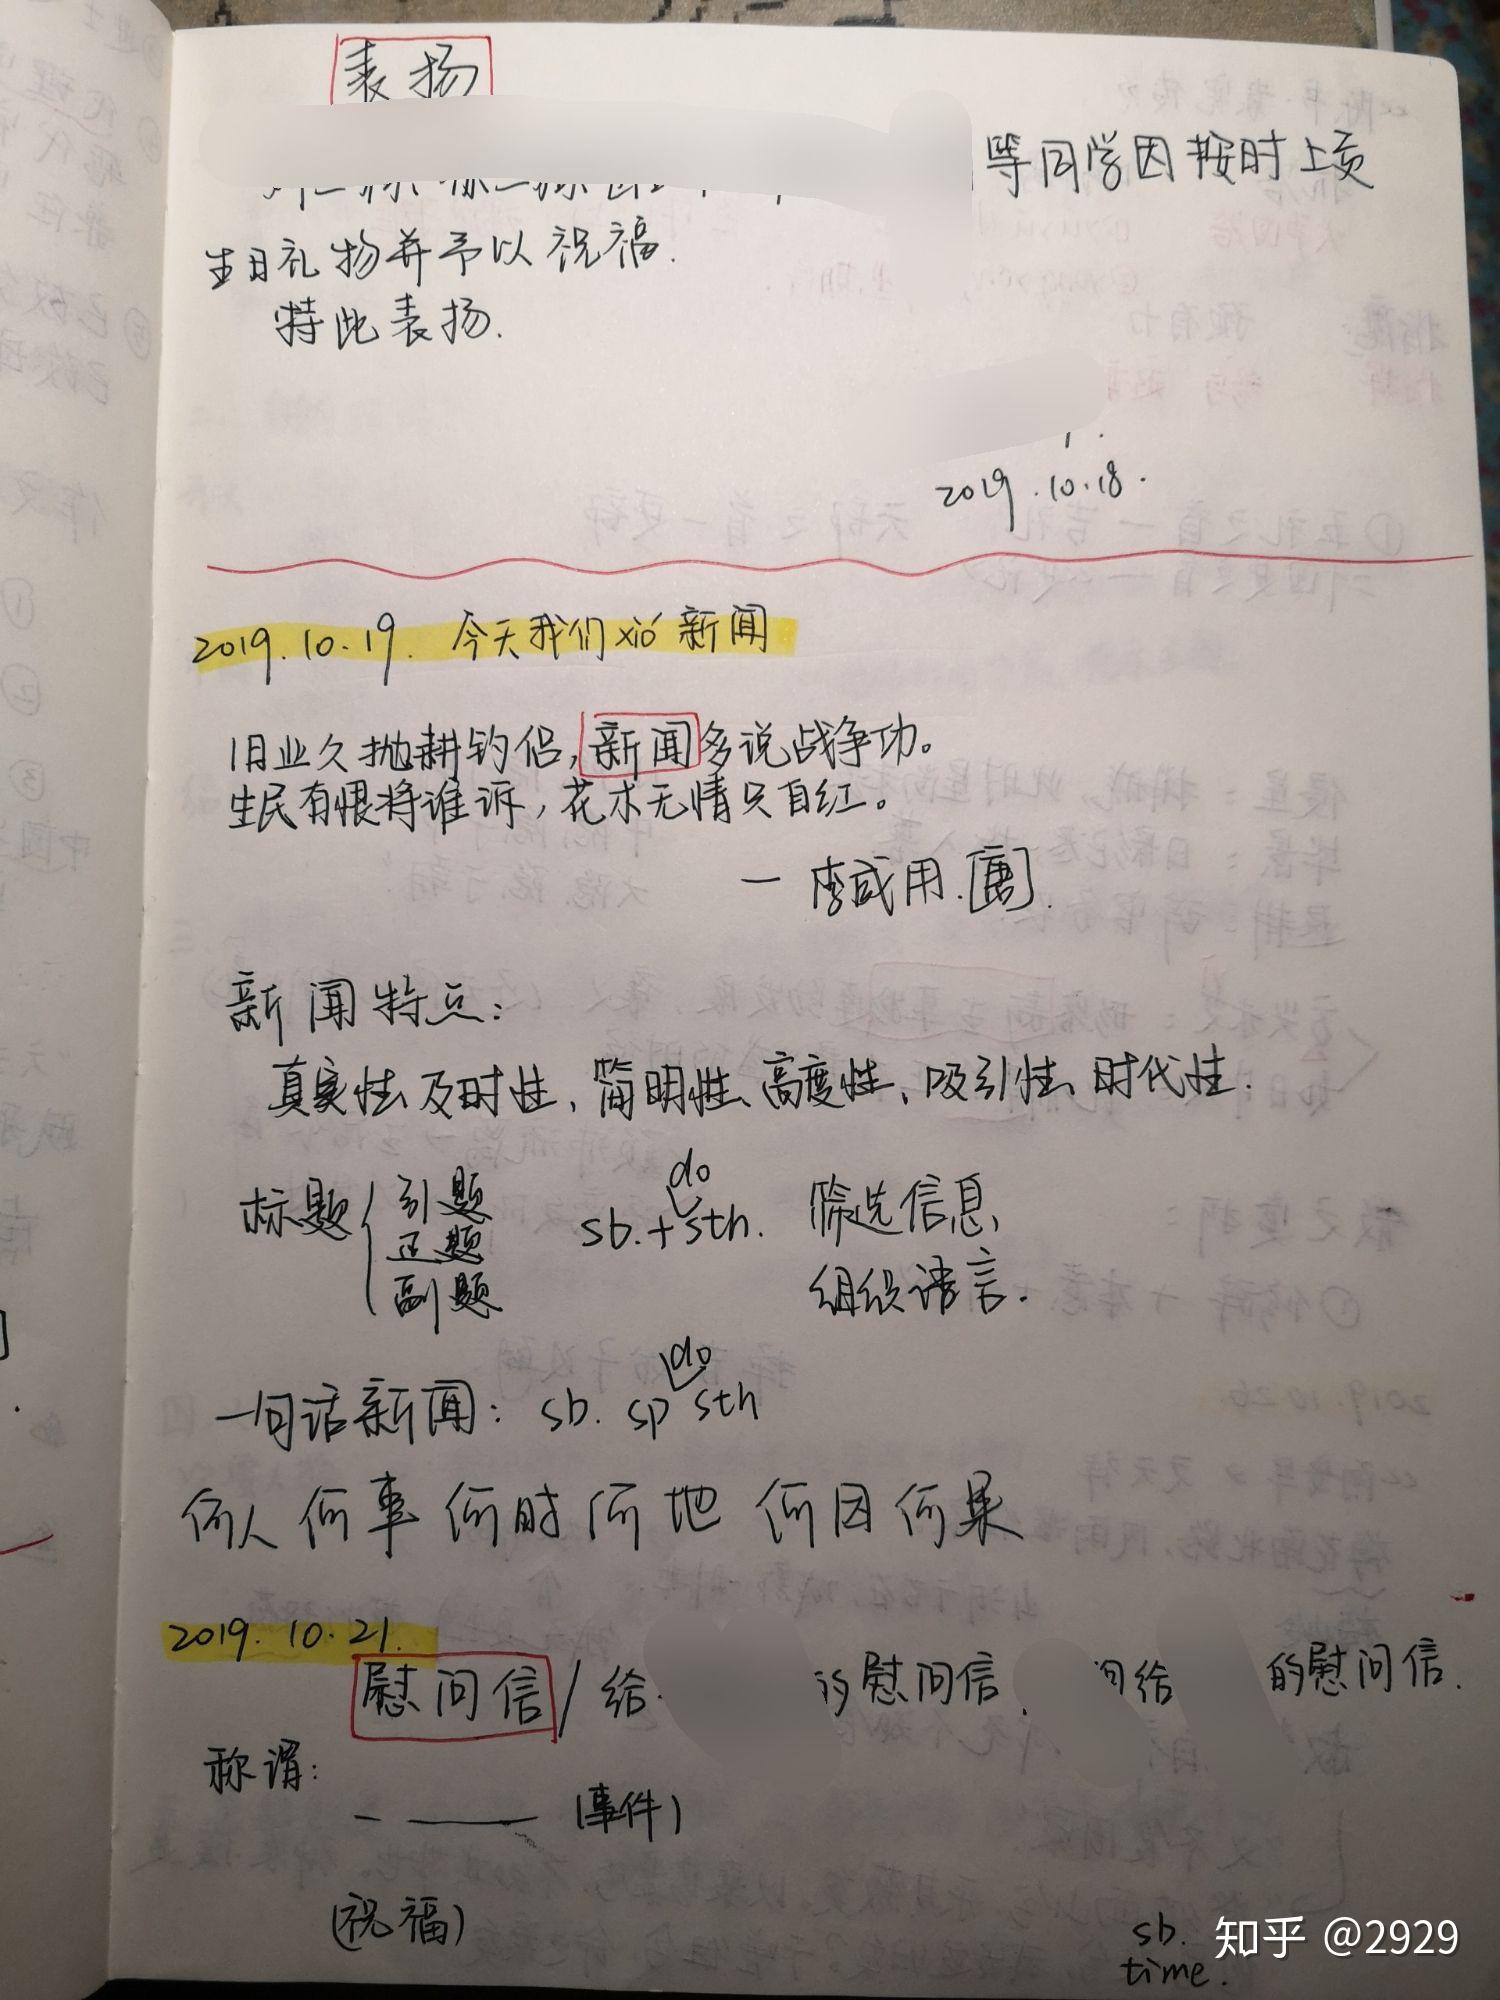 表扬
等同学因按时上贡
生日礼物并予以祝福.
特此表扬.
2019.10.18.
2019.10.19. 今天我们xió新闻
旧业久抛耕钓侣,新闻多说战争功。
生民有恨将谁诉,花木无情只自红。
— 李咸用.[唐].
新闻特点:
真实性、及时性、简明性、高度性、吸引性、时代性.
标题 引题 正题 副题
do
sb.+sth. 筛选信息、
组织语言.
do
一句话新闻: sb. sp sth
何人 何事 何时 何地 何因 何果
2019.10.21.
慰问信/给 的慰问信. 问给 的慰问信.
称谓:
(事件)
(祝福)
sb.
time.
知乎 @2929